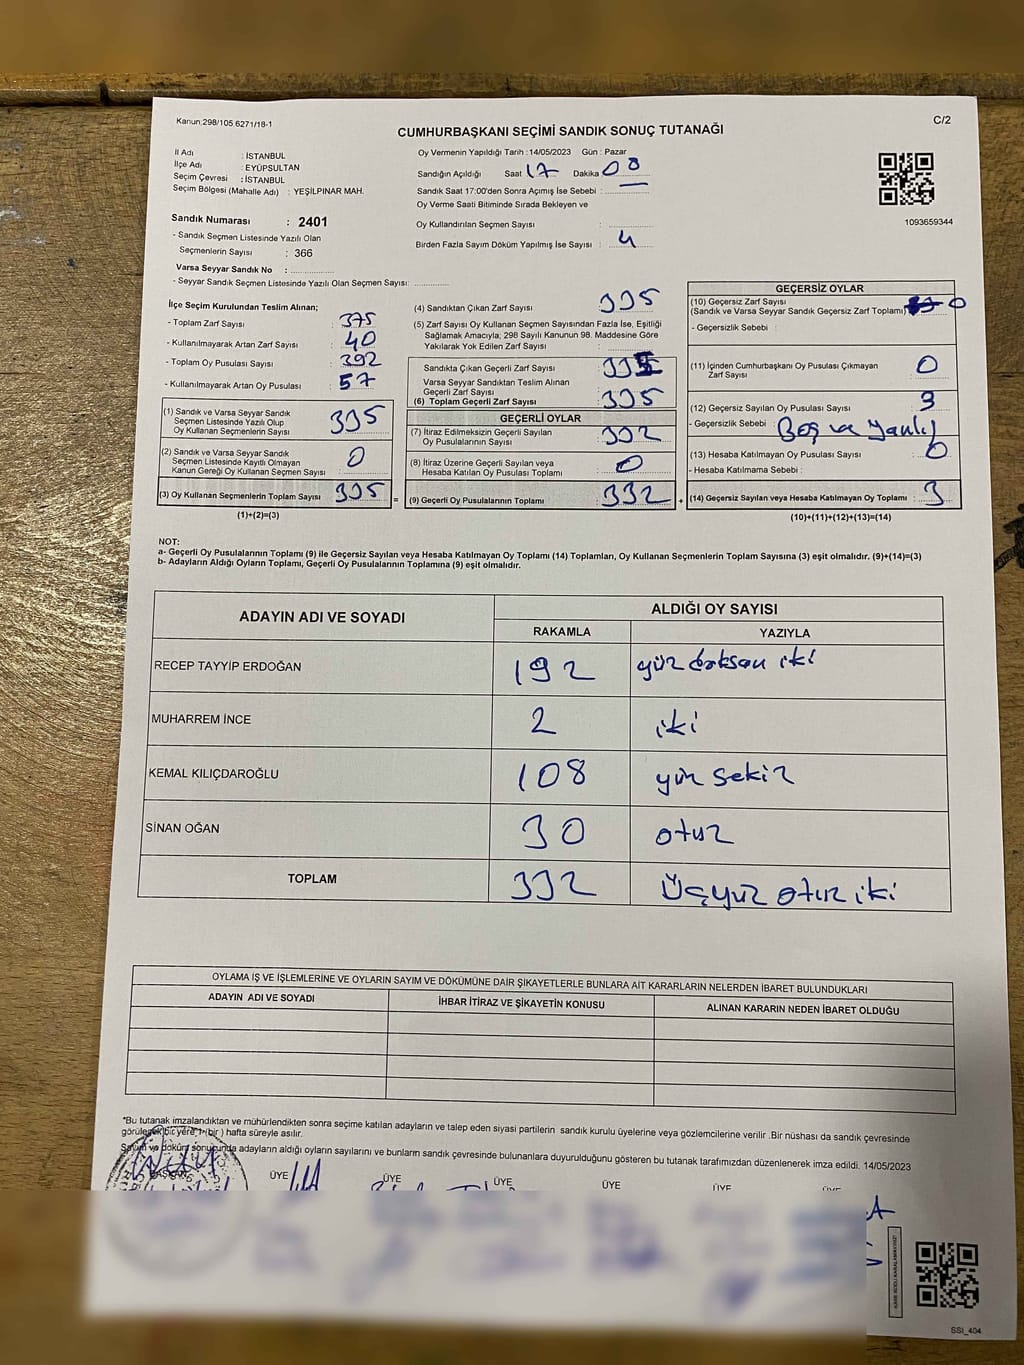 Kanun:298/105 6271/18-1
C/2
CUMHURBAŞKANI SEÇİMİ SANDIK SONUÇ TUTANAĞI
İl Adı : İSTANBUL
İlçe Adı : EYÜPSULTAN
Seçim Çevresi : İSTANBUL
Seçim Bölgesi (Mahalle Adı) : YEŞİLPINAR MAH.
Sandık Numarası : 2401
- Sandık Seçmen Listesinde Yazılı Olan
Seçmenlerin Sayısı : 366
Varsa Seyyar Sandık No :
- Seyyar Sandık Seçmen Listesinde Yazılı Olan Seçmen Sayısı:
Oy Vermenin Yapıldığı Tarih :14/05/2023 Gün : Pazar
Sandığın Açıldığı Saat 17 Dakika 08
Sandık Saat 17:00'den Sonra Açımış İse Sebebi :
Oy Verme Saati Bitiminde Sırada Bekleyen ve
Oy Kullandırılan Seçmen Sayısı :
Birden Fazla Sayım Döküm Yapılmış İse Sayısı : 4
1093659344
İlçe Seçim Kurulundan Teslim Alınan;
- Toplam Zarf Sayısı : 375
- Kullanılmayarak Artan Zarf Sayısı : 40
- Toplam Oy Pusulası Sayısı : 392
- Kullanılmayarak Artan Oy Pusulası : 57
(1) Sandık ve Varsa Seyyar Sandık
Seçmen Listesinde Yazılı Olup
Oy Kullanan Seçmenlerin Sayısı : 335
(2) Sandık ve Varsa Seyyar Sandık
Seçmen Listesinde Kayıtlı Olmayan
Kanun Gereği Oy Kullanan Seçmen Sayısı : 0
(3) Oy Kullanan Seçmenlerin Toplam Sayısı : 335
(1)+(2)=(3)
=
(4) Sandıktan Çıkan Zarf Sayısı : 335
(5) Zarf Sayısı Oy Kullanan Seçmen Sayısından Fazla İse, Eşitliği
Sağlamak Amacıyla; 298 Sayılı Kanunun 98. Maddesine Göre
Yakılarak Yok Edilen Zarf Sayısı :
Sandıkta Çıkan Geçerli Zarf Sayısı : 335
Varsa Seyyar Sandıktan Teslim Alınan
Geçerli Zarf Sayısı :
(6) Toplam Geçerli Zarf Sayısı : 335
GEÇERLİ OYLAR
(7) İtiraz Edilmeksizin Geçerli Sayılan
Oy Pusulalarının Sayısı : 332
(8) İtiraz Üzerine Geçerli Sayılan veya
Hesaba Katılan Oy Pusulası Toplamı : 0
(9) Geçerli Oy Pusulalarının Toplamı : 332
+
GEÇERSİZ OYLAR
(10) Geçersiz Zarf Sayısı
(Sandık ve Varsa Seyyar Sandık Geçersiz Zarf Toplamı) : 0
- Geçersizlik Sebebi :
(11) İçinden Cumhurbaşkanı Oy Pusulası Çıkmayan
Zarf Sayısı : 0
(12) Geçersiz Sayılan Oy Pusulası Sayısı : 3
- Geçersizlik Sebebi : Boş ve Yanlış
(13) Hesaba Katılmayan Oy Pusulası Sayısı : 0
- Hesaba Katılmama Sebebi :
(14) Geçersiz Sayılan veya Hesaba Katılmayan Oy Toplamı : 3
(10)+(11)+(12)+(13)=(14)
NOT:
a- Geçerli Oy Pusulalarının Toplamı (9) ile Geçersiz Sayılan veya Hesaba Katılmayan Oy Toplamı (14) Toplamları, Oy Kullanan Seçmenlerin Toplam Sayısına (3) eşit olmalıdır. (9)+(14)=(3)
b- Adayların Aldığı Oyların Toplamı, Geçerli Oy Pusulalarının Toplamına (9) eşit olmalıdır.
ADAYIN ADI VE SOYADI
ALDIĞI OY SAYISI
RAKAMLA YAZIYLA
RECEP TAYYİP ERDOĞAN 192 yüz doksan iki
MUHARREM İNCE 2 iki
KEMAL KILIÇDAROĞLU 108 yüz sekiz
SİNAN OĞAN 30 otuz
TOPLAM 332 Üçyüz otuz iki
OYLAMA İŞ VE İŞLEMLERİNE VE OYLARIN SAYIM VE DÖKÜMÜNE DAİR ŞİKAYETLERLE BUNLARA AİT KARARLARIN NELERDEN İBARET BULUNDUKLARI
ADAYIN ADI VE SOYADI İHBAR İTİRAZ VE ŞİKAYETİN KONUSU ALINAN KARARIN NEDEN İBARET OLDUĞU
*Bu tutanak imzalandıktan ve mühürlendikten sonra seçime katılan adayların ve talep eden siyasi partilerin sandık kurulu üyelerine veya gözlemcilerine verilir .Bir nüshası da sandık çevresinde
görülecek bir yere 1 (bir ) hafta süreyle asılır.
Sayım ve döküm sonucunda adayların aldığı oyların sayılarını ve bunların sandık çevresinde bulunanlara duyurulduğunu gösteren bu tutanak tarafımızdan düzenlenerek imza edildi. 14/05/2023
BAŞKAN ÜYE ÜYE ÜYE ÜYE ÜYE
SSI_404